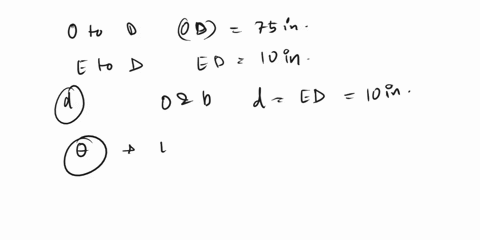 O to D (OD) = 75 in.
E to D ED = 10 in.
d O & b d = ED = 10 in.
θ → L